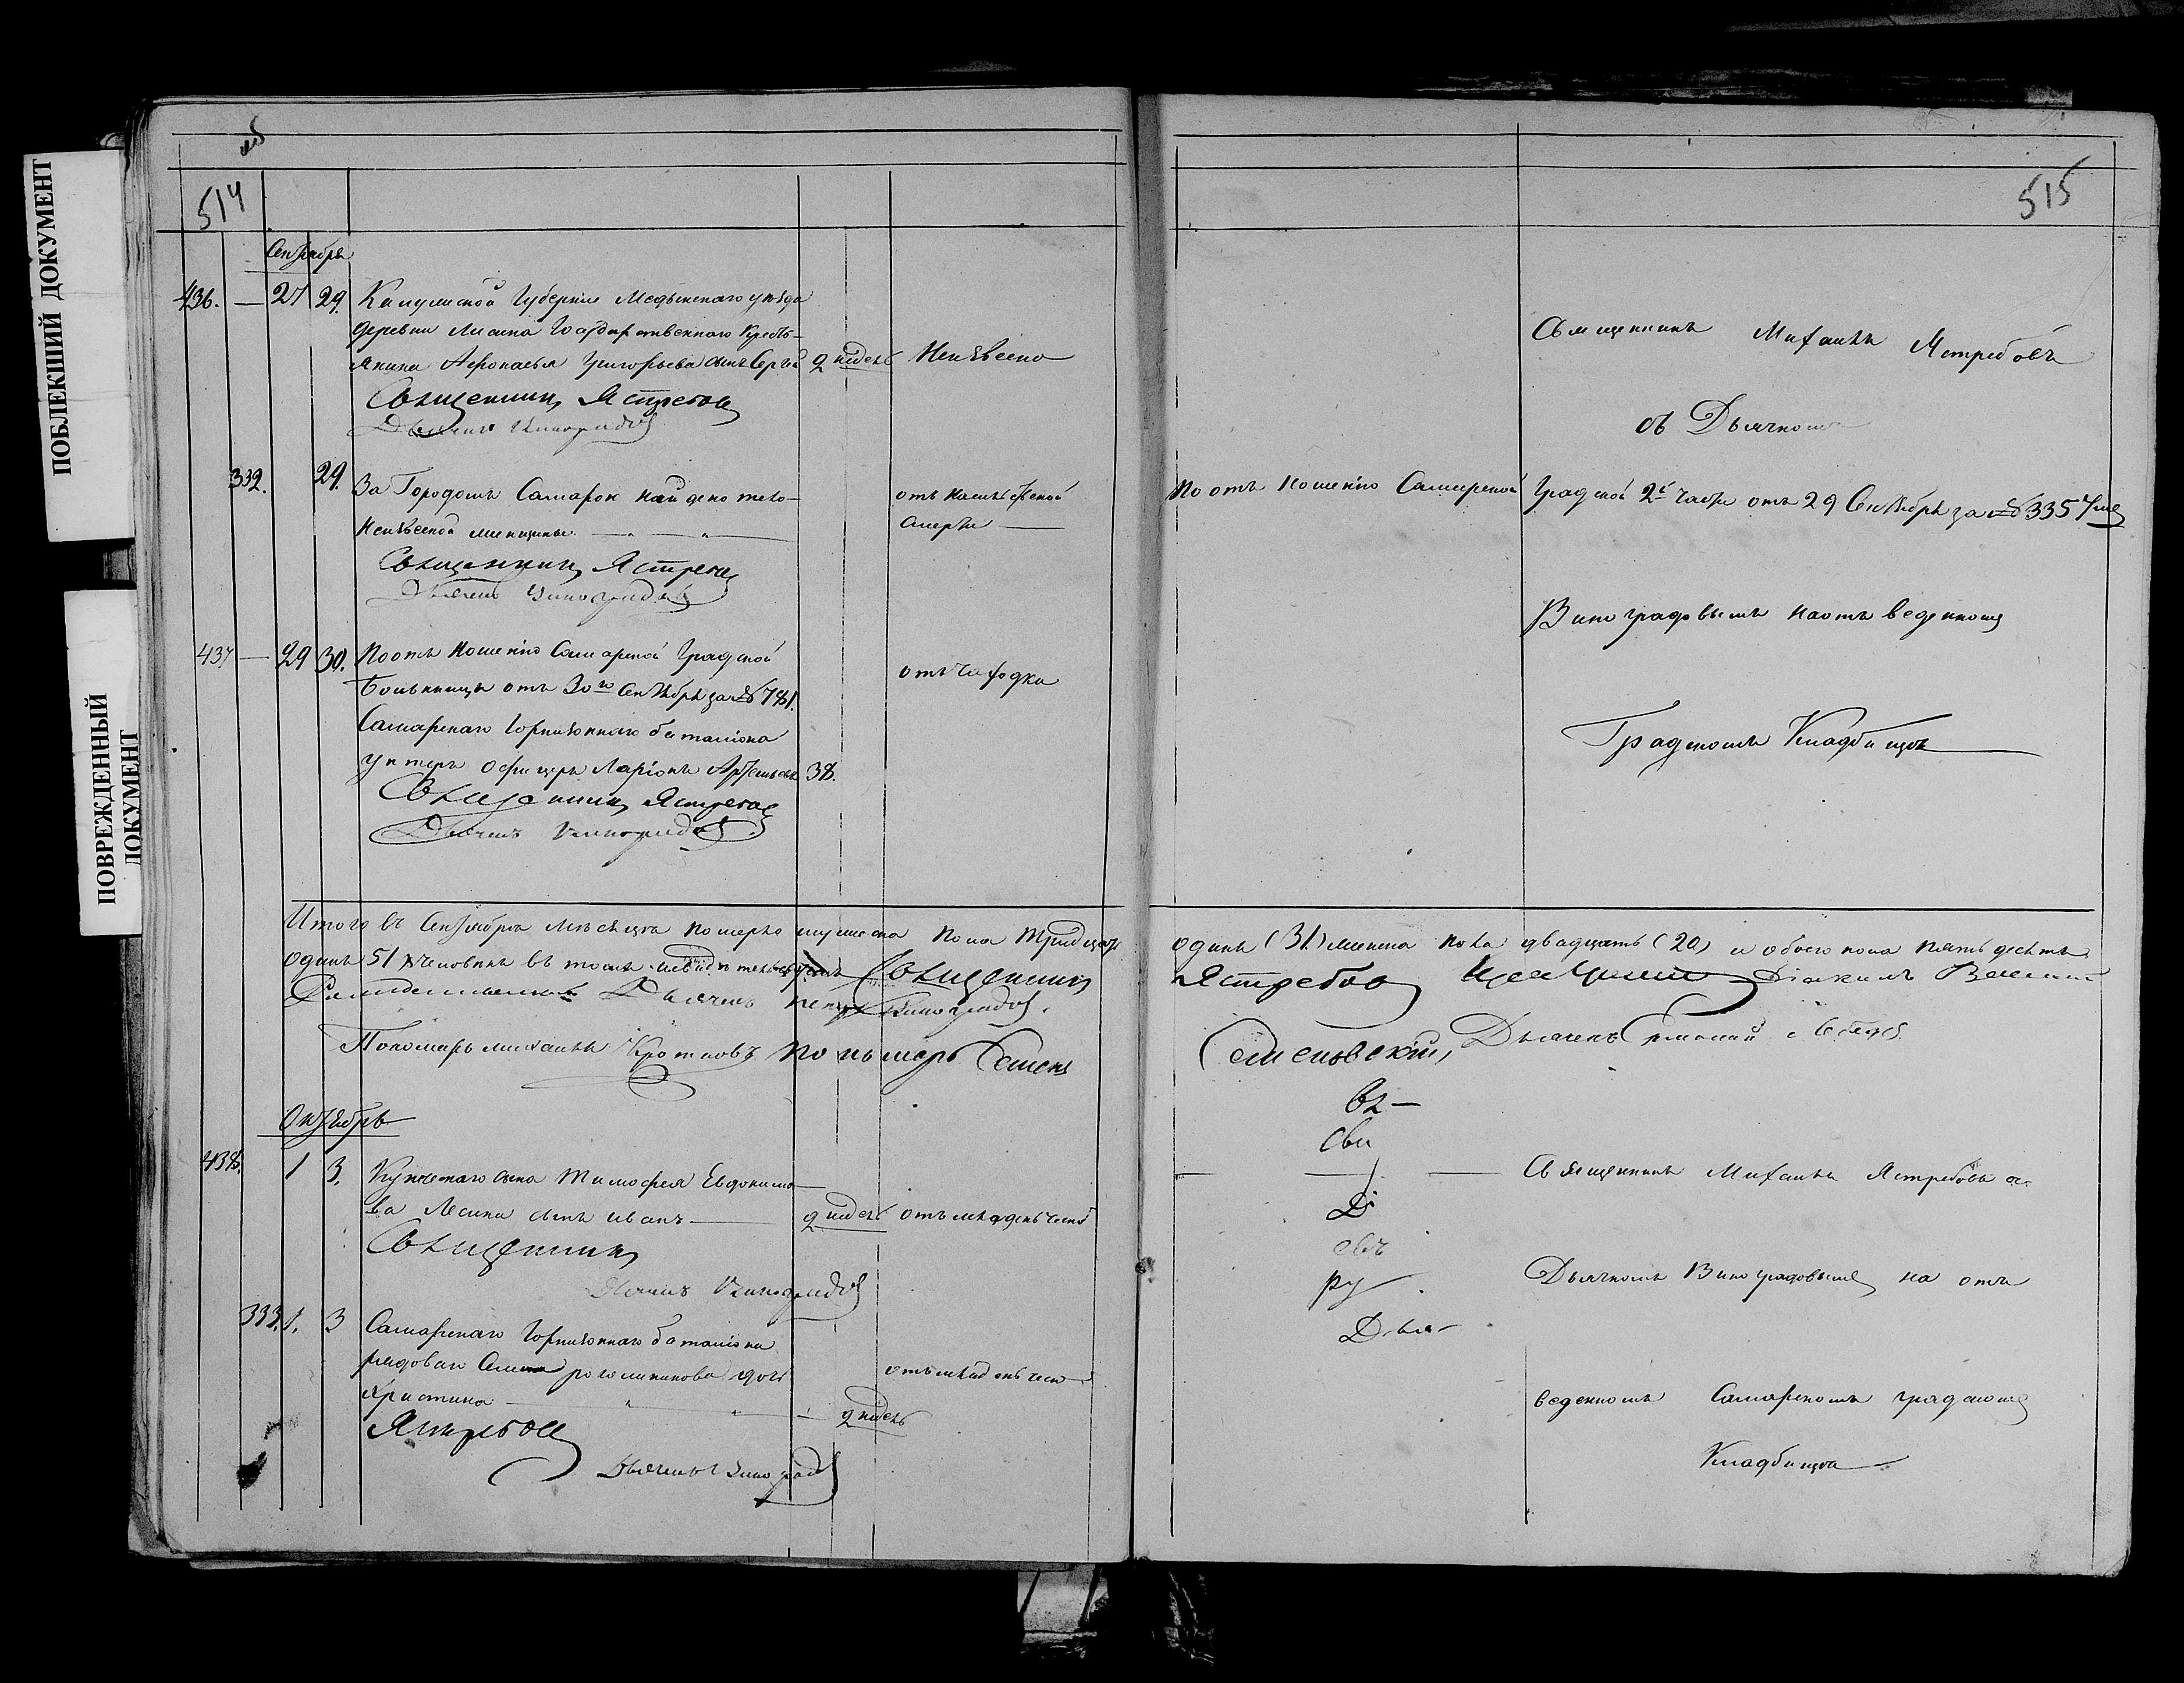 ПОБЛЕКШИЙ ДОКУМЕНТ
ПОВРЕЖДЕННЫЙ
ДОКУМЕНТ
514
Сентябрь
436. — 27 29. Калужской Губернии Медынскаго уѣзда
деревни Государственнаго Кресть-
янина Григорьева сынъ Сергей 9 недель Неизвесно
Священникъ Ястребовъ
Дьячекъ Виноградовъ
332. 29. За Городомъ Самарою найдено тело
Неизвесной женщины
отъ насильственной
смерти
Священникъ Ястребовъ
Дьячекъ Виноградовъ
437 — 29 30. По отношению Самарской Градской
Больницы отъ 30го Сентября за № 781.
Самарскаго Горнизоннаго баталиона
унтеръ офицеръ Ларіонъ 38.
отъ чахотки
Священникъ Ястребовъ
Дьячекъ Виноградовъ
Итого въ Сентябрѣ месяце померло мужеска пола тридцать
одинъ 51 человекъ въ томъ
Священникъ
Дьячекъ Петръ Виноградовъ.
Пономарь михаилъ Кротковъ пономарь Семенъ
Октябрь
438. 1 3. Купеческаго сына Тимофея Евдокимо-
ва сынъ иванъ 9 недель отъ младенческой
Священникъ
Дьячекъ Виноградовъ
333. 1. 3 Самарскаго Горнизоннаго баталиона
рядоваго дочь
христина 9 недель
отъ младенческой
Ястребовъ
Дьячекъ Виноградовъ
515
Священникъ Михаилъ Ястребовъ
съ Дьячкомъ
По отношению Самарской Градской 2й части отъ 29 Сентября за № 335
Виноградовымъ на отведенномъ
Градскомъ Кладбище
одинъ (31) женска пола двадцать (20) и обоего пола пять десять
Ястребовъ Діаконъ
Семеновскій, Дьячекъ
въ —
Сви
Ді
евъ
ру
Дья-
Священникъ Михаилъ Ястребовъ съ
Дьячкомъ Виноградовымъ на отъ
веденномъ Самарскомъ градскомъ
Кладбище